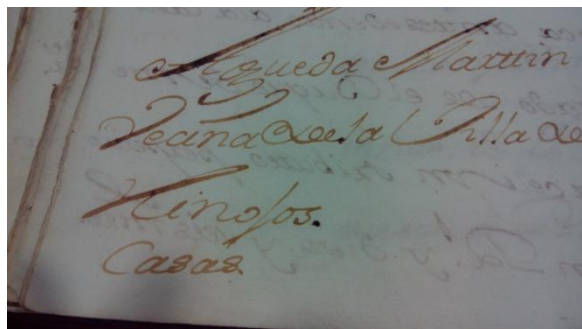 Agueda Martin
Vezina de la Villa de
Hinojos.
Casas